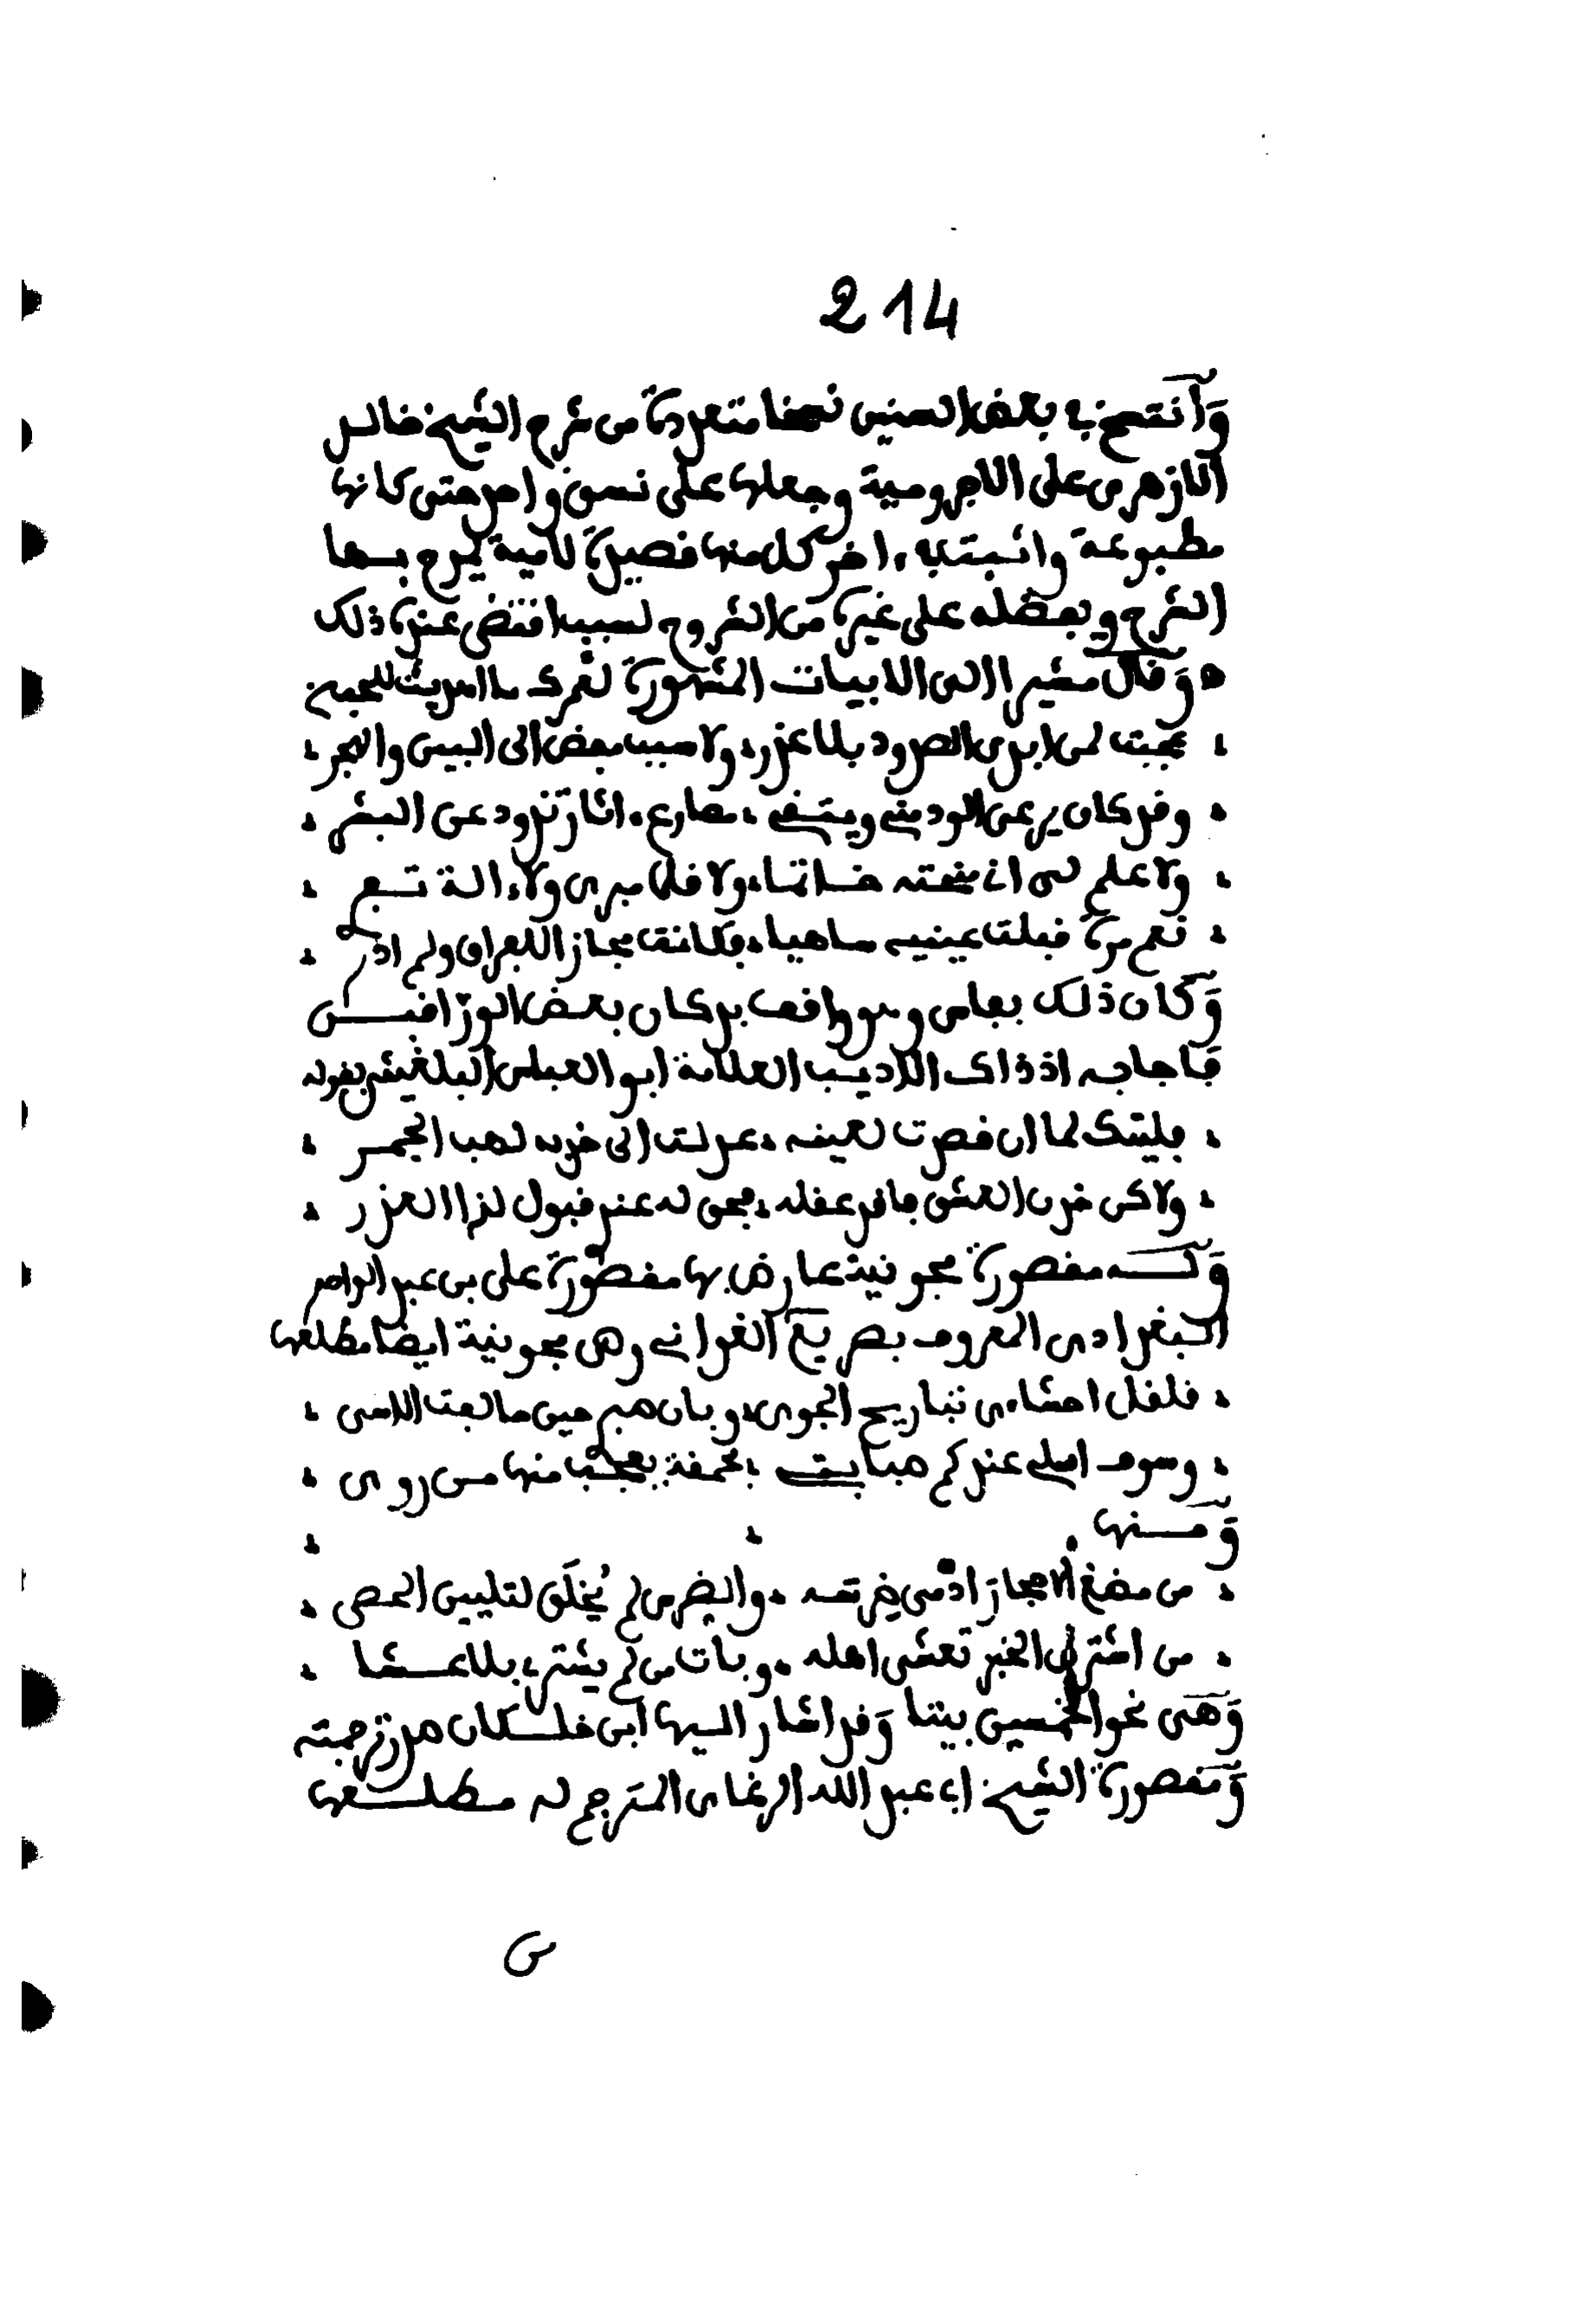 214
وانتسخ في بعض السنين نسخا متعددة من شرح الشيخ خالد
الازهري على الاجرومية وجعلها على نسق واحد حتى كانها
مطبوعة واثبت في ءاخر كل منها قصيدة لامية يمدح بها
الشرح ويفضله على غيره من الشروح لسبب اقتضى عنده ذلك
وقال مشيرا الى الابيات المشهورة لعمرك ما اهديت للحب
عجبت لمن ابدى الصدود بلا عذر ولا سبب يفضى الى البين والهجر
وقد كان يرعى الود منى ويتقى مصارع ءاثار تزود عن البشر
ولا علم لى انى منحته خاتما ولا قلما يبرى ولا ءالة تبر
نعم مرة قبلت عينيه ساهيا فكانت مجازا للفراق ولم ادر
وكان ذلك بفاس وهو واقف بدكان بعض الوراقين
فاجابه اذ ذاك الاديب العلامة ابو العباس البلغيثي بقوله
فليتك لما ان قصدت لعينه عدلت الى خديه لهب الجمر
ولاكن خدن العشق فاقد عقله فحق له عند قبول لذا العذر
وله مقصورة مجونية عارض بها مقصورة علي بن عبد الواحد
البغدادي المعروف بصريع الغواني وهي مجونية ايضا مطلعها
قلقل احشاءي تباريح الجوى وبان صبري حين حالفت الاسى
وسوف اسلي عندكم صبابتي بحمقة يعجب منها من روى
ومنها
من مضغ الاحجار ادمى ضرسه والضرس لم يخلق لتليين الحصى
من اشترى الخبز تعشى اهله وبات من لم يشتر بلا عشا
وهي نحو الخمسين بيتا وقد اشار اليها ابن خلكان صدر ترجمته
ومقصورة الشيخ ابي عبد الله الرغاي المترجم له مطلعها